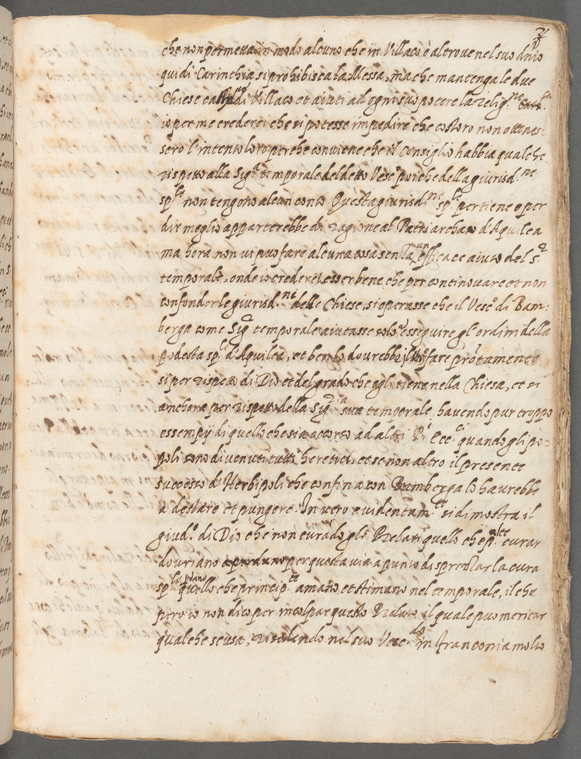 che non permeva in modo alcuno che in Villaco è altrove nel suo dnio
quidi Carinthia si prohibisca la Messa, ma che mantenga le due
Chiese catt di Villaco et aiuti ad ogni suo potere la Relig.ne
io per me crederei che si potesse impedire che costoro non ottenes-
sero l'intento loro perche conviene che il Consiglio habbia qualche
rispetto alla Sig.a temporale del detto Vesc.o poiche della giurisd.ne
sp.le non tengono alcun conto. Questa giurisd.ne sp.le pertiene o per
dir meglio apparterebbe di ragione al Patriarchato d'Aquilea
ma hora non vi puo fare alcuna cosa senza un efficace aiuto del S.r
temporale, onde io crederei esser bene che per continovare et non
confonder le giurisd.ni delle Chiese, si operasse che il Vesc.o di Bam-
berga come Sig.r temporale aiutasse solo esseguire gl' ordini della
podesta sp.le d'Aquilea, et ben lo dovrebbe fare prontamente
si per rispetto di Dio et del grado che egli tiene nella Chiesa, et si
anchora per rispetto della Sig.ria sua temporale, havendo pur troppo
essempij di quello che sia accorso ad altri P. Ecc.ci quando gli po-
poli sono divenuti tutti heretici, et se non altro il presente
successo d'Herbipoli che confina con Bamberga lo haurebbe
à destare et pungere. In vero evidentam.te si dimostra il
giud.o di Dio che non curado gli Prelati quello che p.alte curar
douriano per questa via a punto di sprezzar la cura
sp.le quello che princip.te amano et stimano nel temporale, il che
pero io non dico per incolpar questo Prelato il quale puo meritar
qualche scusa, risedendo nel suo Vesc.do in franconia molto